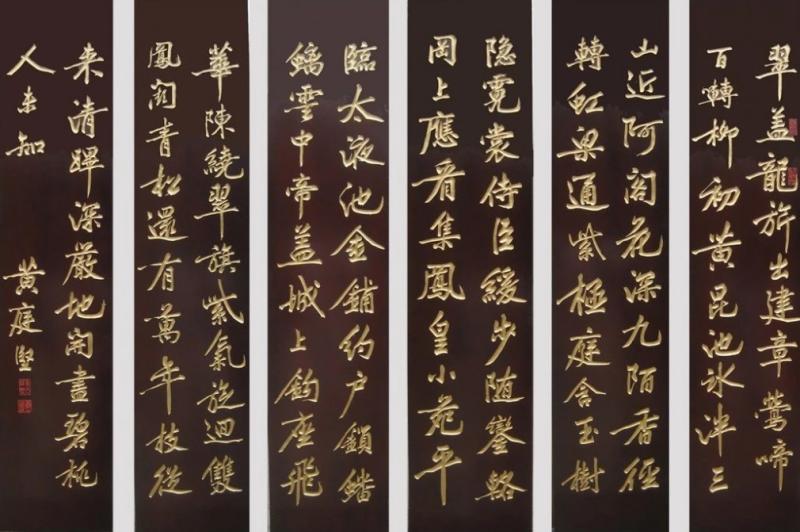 翠盖龍旂出建章鶯啼
百轉柳初黄昆池冰泮三
山近阿阁花深九陌香径
轉虹梁通紫極庭含玉樹
隐霓裳侍臣緩步随鑾輅
岡上應看集鳳皇小苑平
臨太液池金鋪約户鎖蟠
螭雲中帝盖城上鈎座飛
華陳繞翠旗紫氣旋迴雙
鳳阁青松還有萬年枝從
来清蹕深嚴地開盡碧桃
人未知
黄庭堅